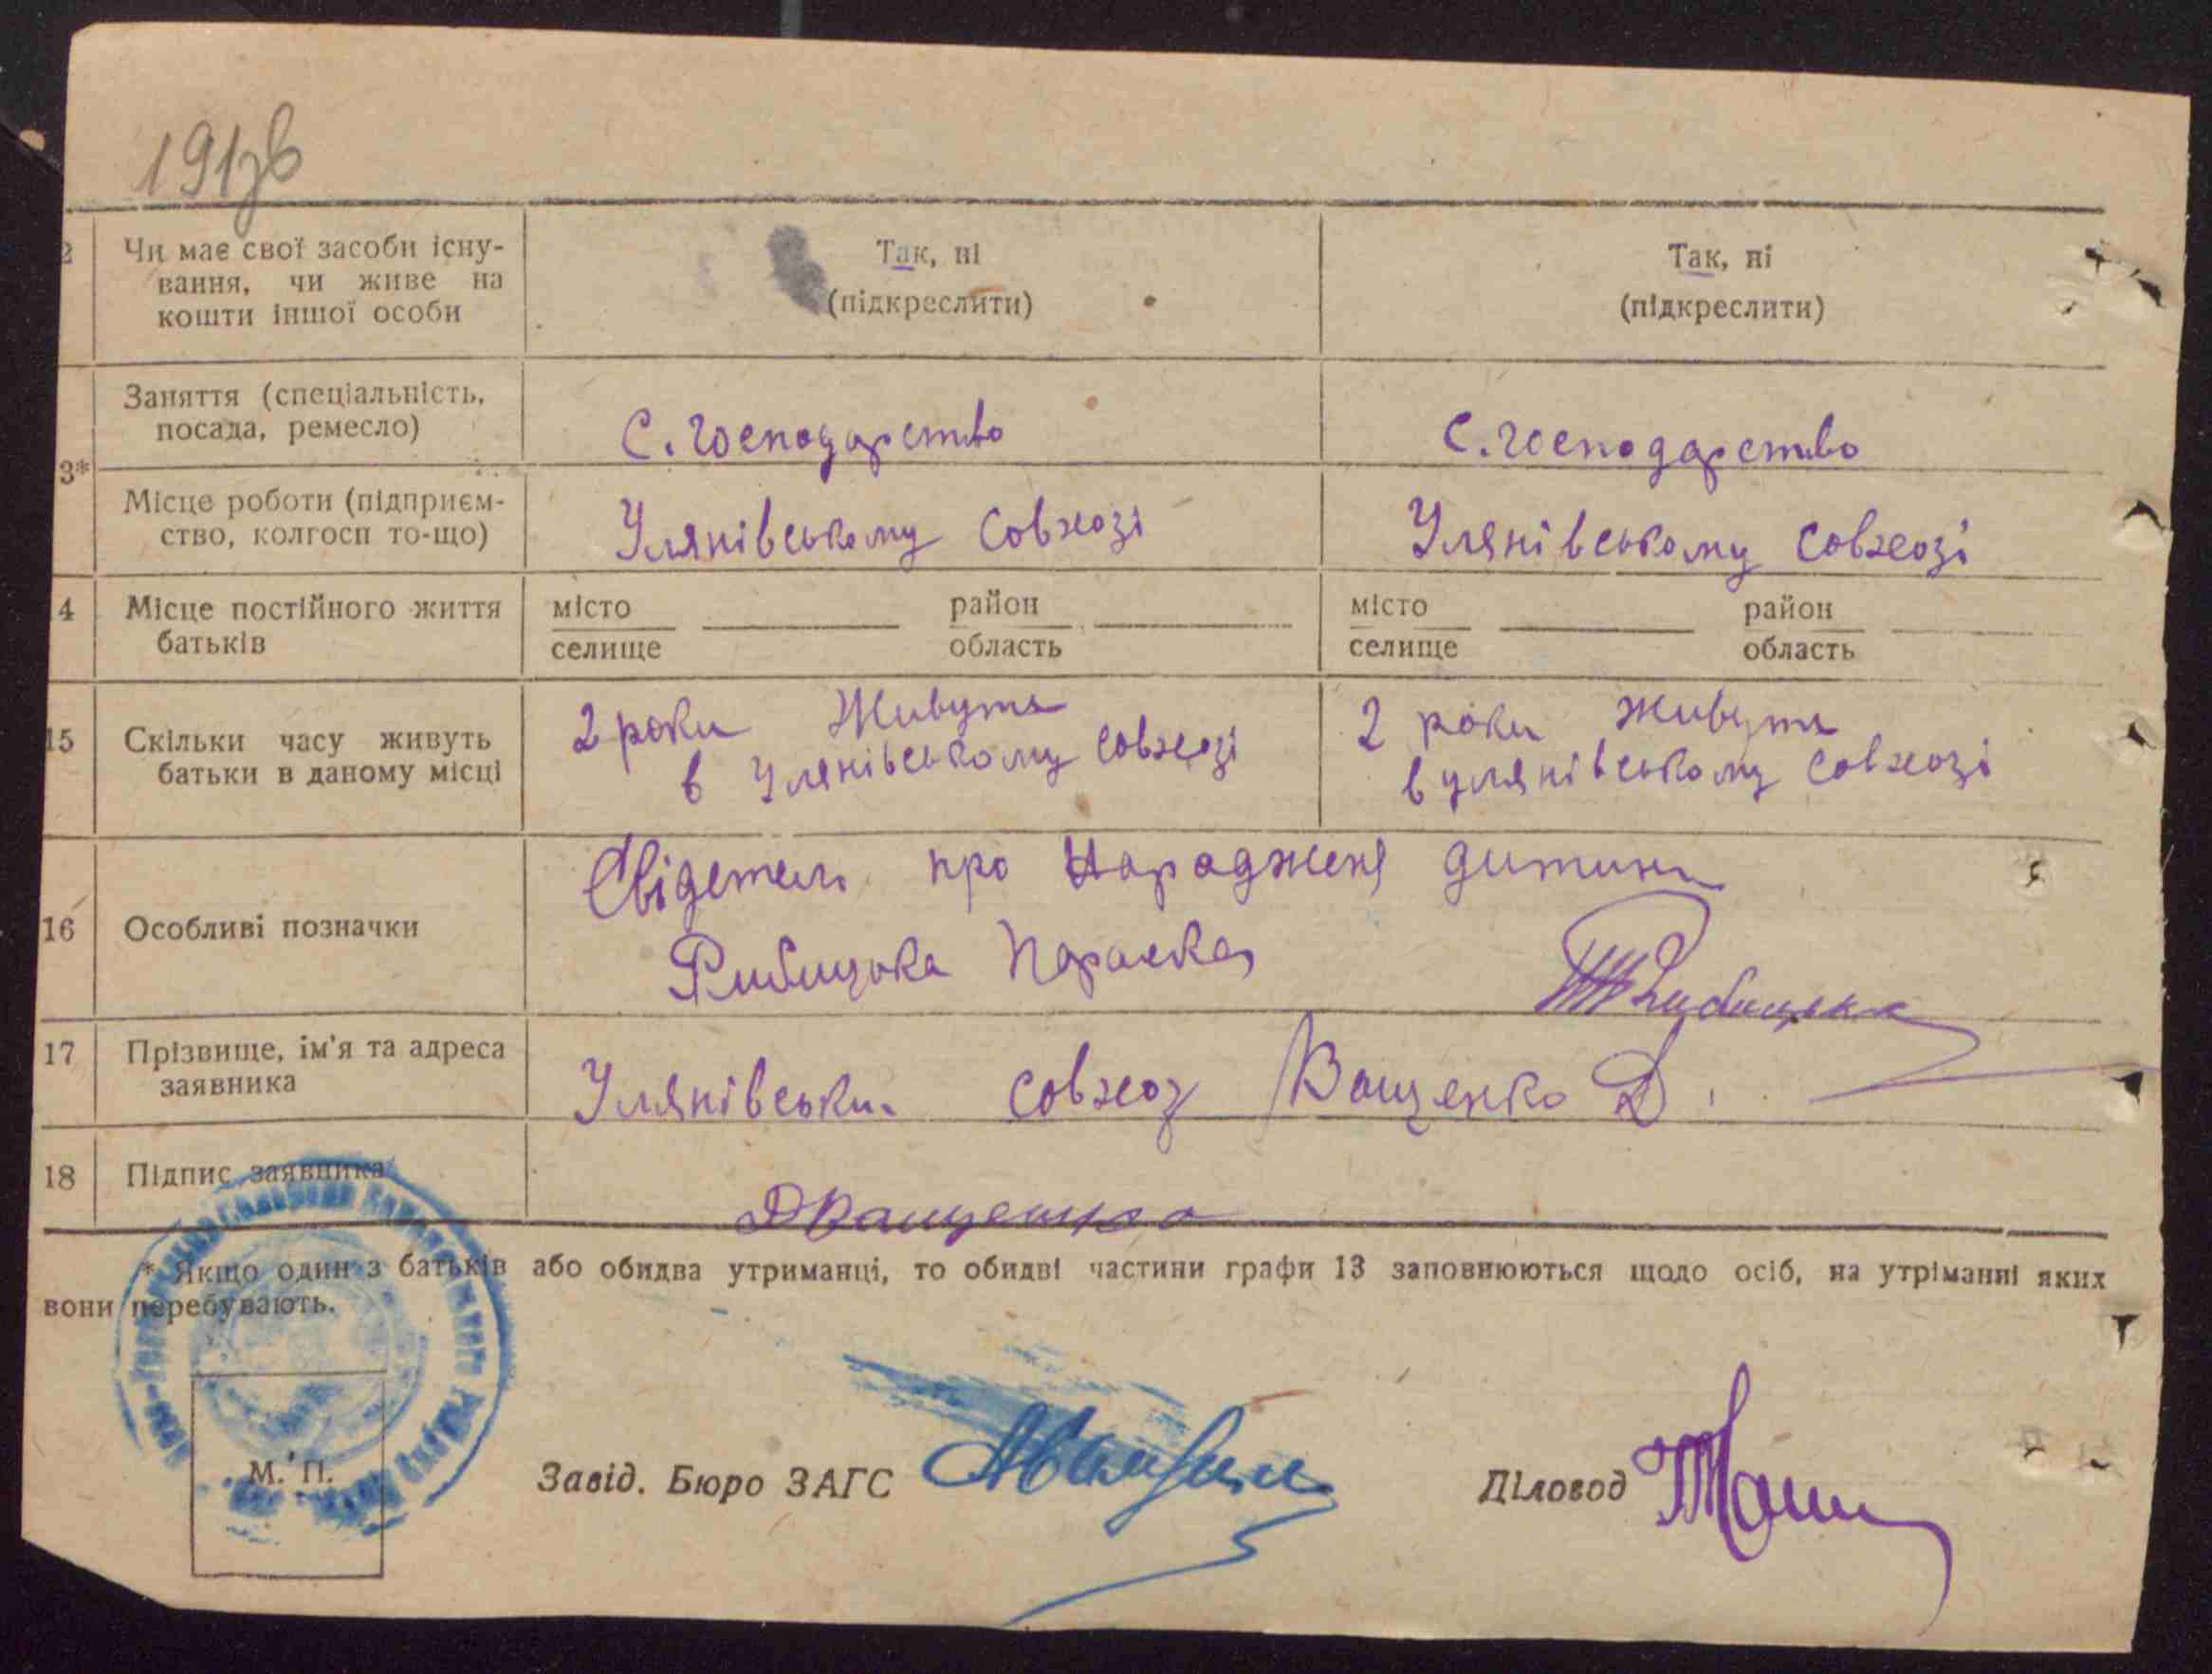 191зв
2 Чи має свої засоби існу-
вання, чи живе на
кошти іншої особи
Так, ні
(підкреслити)
Так, ні
(підкреслити)
3*
Заняття (спеціальність,
посада, ремесло)
С. господарство
С. господарство
Місце роботи (підприєм-
ство, колгосп то-що)
Улянівському совхозі
Улянівському совхозі
4 Місце постійного життя
батьків
місто район
селище область
місто район
селище область
15 Скільки часу живуть
батьки в даному місці
2 роки Живуть
в Улянівському совхозі
2 роки живуть
в улянівському совхозі
16 Особливі позначки
Свідетель про Народженя дитини
Рибицька Параска
Рибицька
17 Прізвище, ім'я та адреса
заявника
Улянівськи совхоз Ващенко Д.
18 Підпис заявника
ДВащенко
* Якщо один з батьків або обидва утриманці, то обидві частини графи 13 заповнюються щодо осіб, на утріманні яких
вони перебувають.
М. П.
Завід. Бюро ЗАГС
Діловод